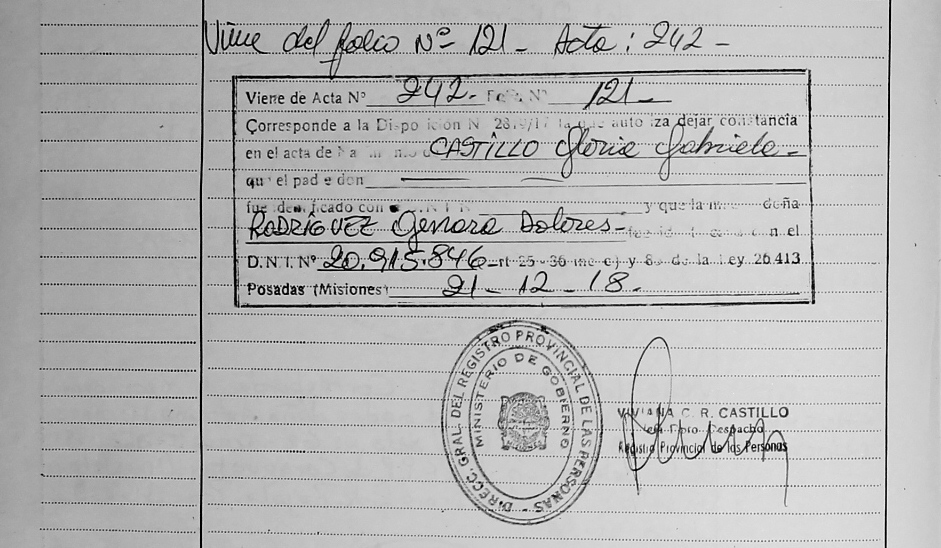 Viene del folio Nº 121 - Acta: 242 -
Viene de Acta Nº 242 - Folio Nº 121 -
Corresponde a la Disposición N 2819/17 la que autoriza dejar constancia
en el acta de CASTILLO Gloria Gabriela -
que el padre don —
fue identificado con D.N.I. Nº y que la madre doña
RODRÍGUEZ Genara Dolores - el
D.N.I. Nº 20.915.846 - art 25 - 36 inc c) y 8 de la Ley 26 413
Posadas (Misiones) 21 - 12 - 18 -
DIRECC. GRAL. DEL REGISTRO PROVINCIAL DE LAS PERSONAS
MINISTERIO DE GOBIERNO
VIVIANA C. R. CASTILLO
Jefa Dpto. Despacho
Registro Provincial de las Personas